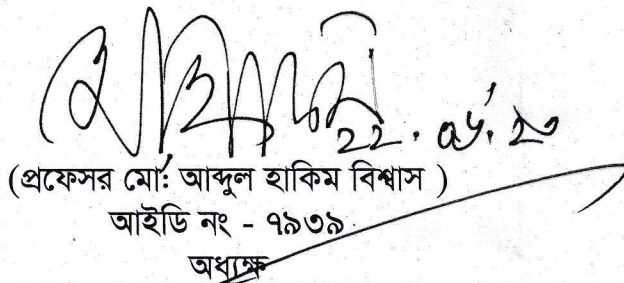 (প্রফেসর মো: আব্দুল হাকিম বিশ্বাস )
আইডি নং - ৭৯৩৯
অধ্যক্ষ